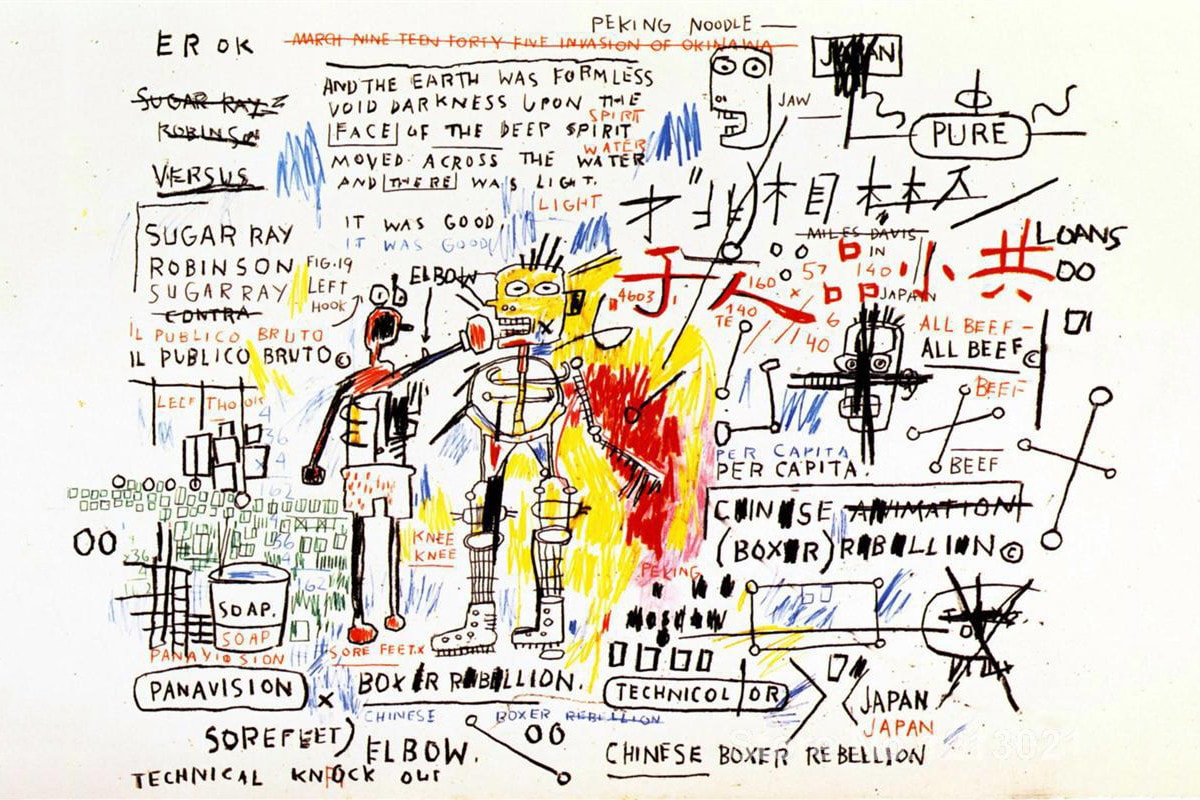 PEKING NOODLE —
EROK
MARCH NINE TEEN FORTY FIVE INVASION OF OKINAWA
JAPAN
AND THE EARTH WAS FORMLESS
SUGAR RAY
VOID DARKNESS UPON THE
JAW
SPIRIT
ROBINSON
FACE OF THE DEEP SPIRIT
PURE
WATER
VERSUS
MOVED ACROSS THE WATER
AND THERE WAS LIGHT.
LIGHT
IT WAS GOOD
IT WAS GOOD
MILES DAVIS
LOANS
SUGAR RAY
ROBINSON
FIG. 19
ELBOW
IN
57
140
160 x
SUGAR RAY
LEFT
HOOK
4603
JAPAN
子人品小共
CONTRA
140
6
TE
40
IL PUBLICO BRUTO
IL PUBLICO BRUTO©
ALL BEEF –
ALL BEEF©
BEEF
4
36
x 4
PER CAPITA
PER CAPITA.
BEEF
162
CHINESE ANIMATION
(BOXER) REBELLION©
KNEE
KNEE
x36
36
4
62
PEKING
SOAP.
SOAP
MOSCOW
PANAVISION
SORE FEET.x
PANAVISION
x
BOXER REBELLION.
TECHNICOLOR
JAPAN
JAPAN
CHINESE
BOXER REBELLION
SOREFEET)
ELBOW.
CHINESE BOXER REBELLION
302
TECHNICAL KNOCK OUT